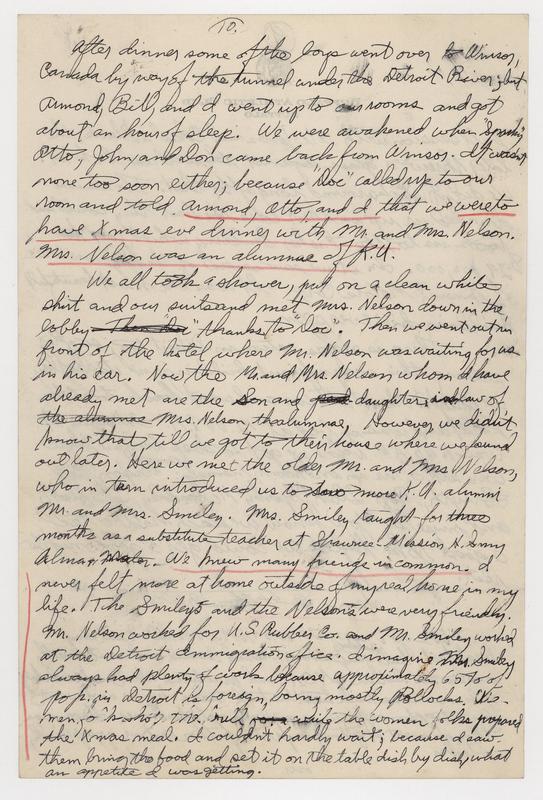 10.
After dinner some of the boys went over to Winsor,
Canada by way of the tunnel under the Detroit River; but
Armond, Bill, and I went up to our rooms and got
about an hour of sleep. We were awakened when "Spanky"
Otto, John, and Don came back from Winsor. It wasn't
none too soon either; because "Doc" called up to our
room and told Armond, Otto, and I, that we were to
have Xmas eve dinner with Mr. and Mrs. Nelson.
Mrs. Nelson was an alumnae of K.U.
We all took a shower, put on a clean white
shirt and our suits and met Mrs. Nelson down in the
lobby thanks to "Doc". Then we went out in
front of the hotel where Mr. Nelson was waiting for us
in his car. Now the Mr. and Mrs. Nelson whom I have
already met are the son and daughter, law of
the alumnae Mrs. Nelson, the alumnae, However we didn't
know that till we got to their house where we found
out later. Here we met the older Mr. and Mrs. Nelson,
who in turn introduced us to more K.U. alumni
Mr. and Mrs. Smiley. Mrs. Smiley taught for three
months as a substitute teacher at Shawnee Mission H. S my
Alma Mater. We knew many friends in common. I
never felt more at home outside of my real home in my
life. The Smileys and the Nelson's were very friendly.
Mr. Nelson worked for U.S. Rubber Co. and Mr. Smiley worked
at the Detroit Immigration office. I imagine Mr. Smiley
always had plenty of work because approximately 65% of
pop. in Detroit is foreign, being mostly Pollocks. We
men, "bull" while the women folks prepared
the Xmas meal. I couldn't hardly wait; because I saw
them bring the food and set it on the table dish by dish, what
an appetite I was getting.